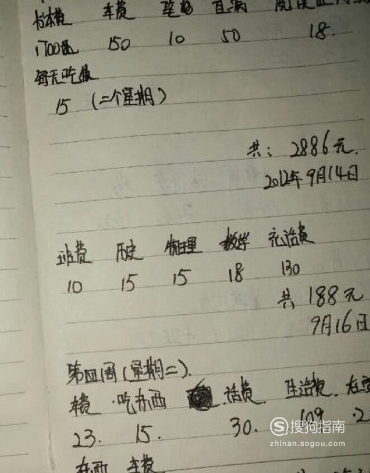 书本费 车费 直销
1700元 150 10 50 18
每天吃饭
15 (二个星期)
共: 2886元.
2012年9月14日
班费 历史 物理 数学 充话费
10 15 15 18 130
共 188元
9月16日
第四周(星期二).
车费 吃东西 话费 生活费
23. 15. 30. 109
东西 车费
搜狗指南
zhinan.sogou.com